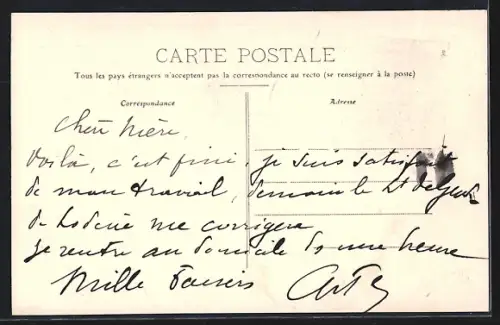 CARTE POSTALE
Tous les pays étrangers n'acceptent pas la correspondance au recto (se renseigner à la poste)
Correspondance
Adresse
Voilà, c'est fini, je suis satisfait
de mon travail, demain le Lt
de me corrigera
je rentre au domicile ds une heure
Mille baisers